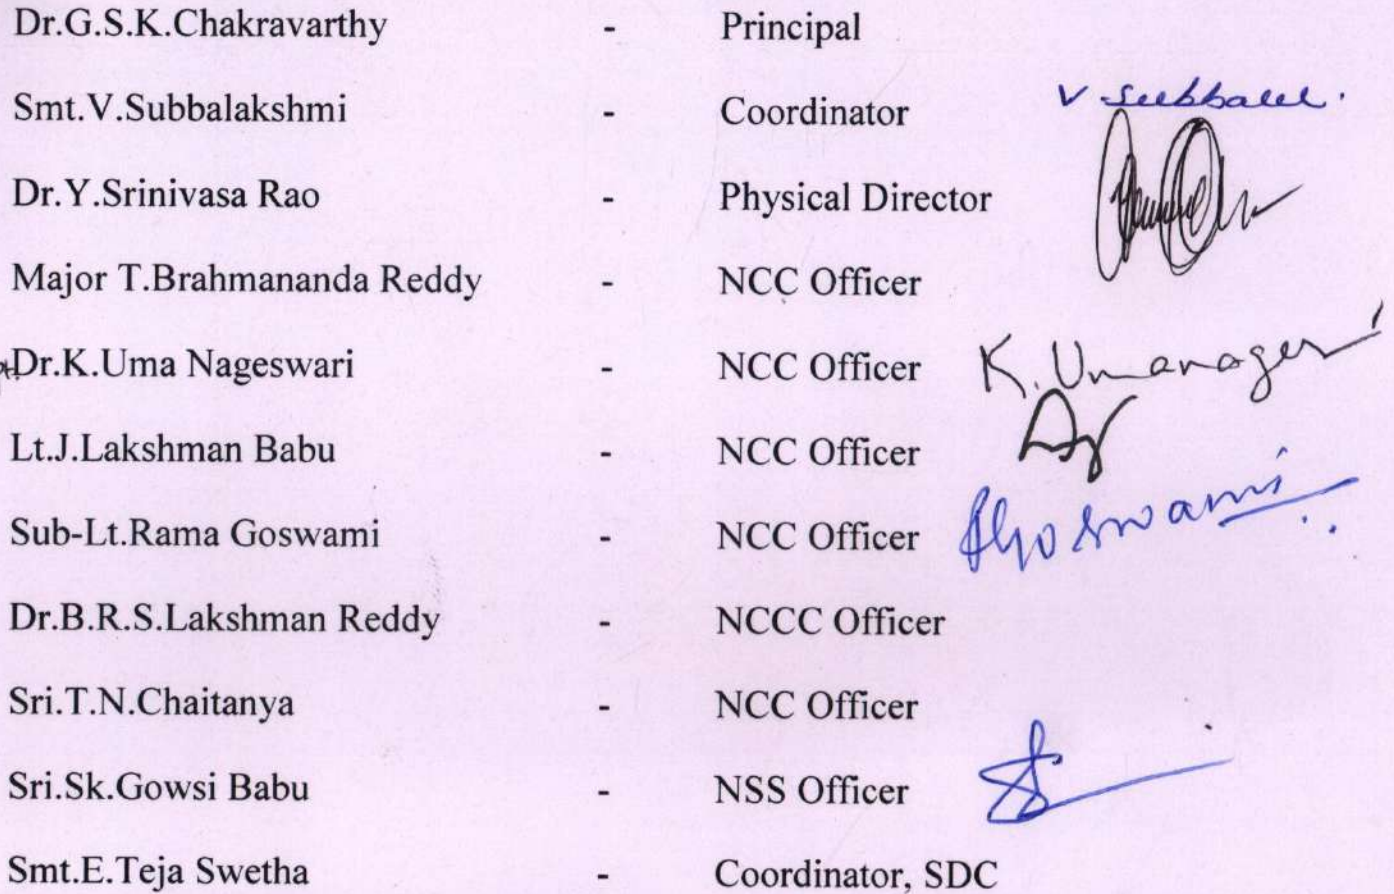 Dr.G.S.K.Chakravarthy - Principal
Smt.V.Subbalakshmi - Coordinator V Subbalal.
Dr.Y.Srinivasa Rao - Physical Director
Major T.Brahmananda Reddy - NCC Officer
Dr.K.Uma Nageswari - NCC Officer K.Umanages
Lt.J.Lakshman Babu - NCC Officer
Sub-Lt.Rama Goswami - NCC Officer Goswami
Dr.B.R.S.Lakshman Reddy - NCCC Officer
Sri.T.N.Chaitanya - NCC Officer
Sri.Sk.Gowsi Babu - NSS Officer
Smt.E.Teja Swetha - Coordinator, SDC